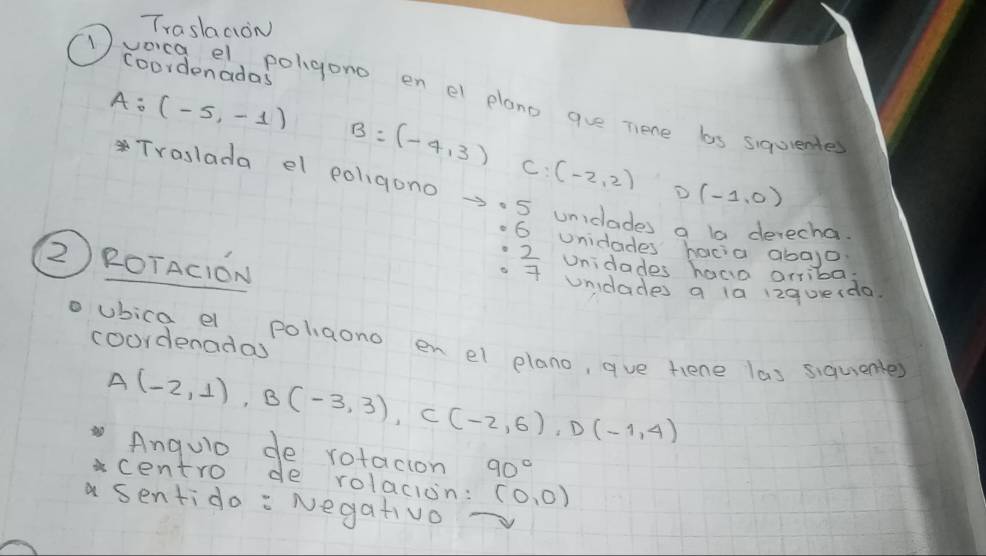 Traslación
① Ubica el poligono en el plano que tiene los siguientes
coordenadas
A: (-5, -1) B = (-4,3) C: (-2,2) D (-1,0)
* Traslada el poligono → • 5 unidades a la derecha.
• 6 unidades hacia abajo.
• 2 unidades hacia arriba.
• 7 unidades a la izquierda.
② ROTACIÓN
• Ubica el poligono en el plano, que tiene las siguientes
coordenadas
A(-2,1), B(-3,3), C(-2,6), D(-1,4)
* Angulo de rotacion 90°
* centro de rolación: (0,0)
* Sentido: Negativo